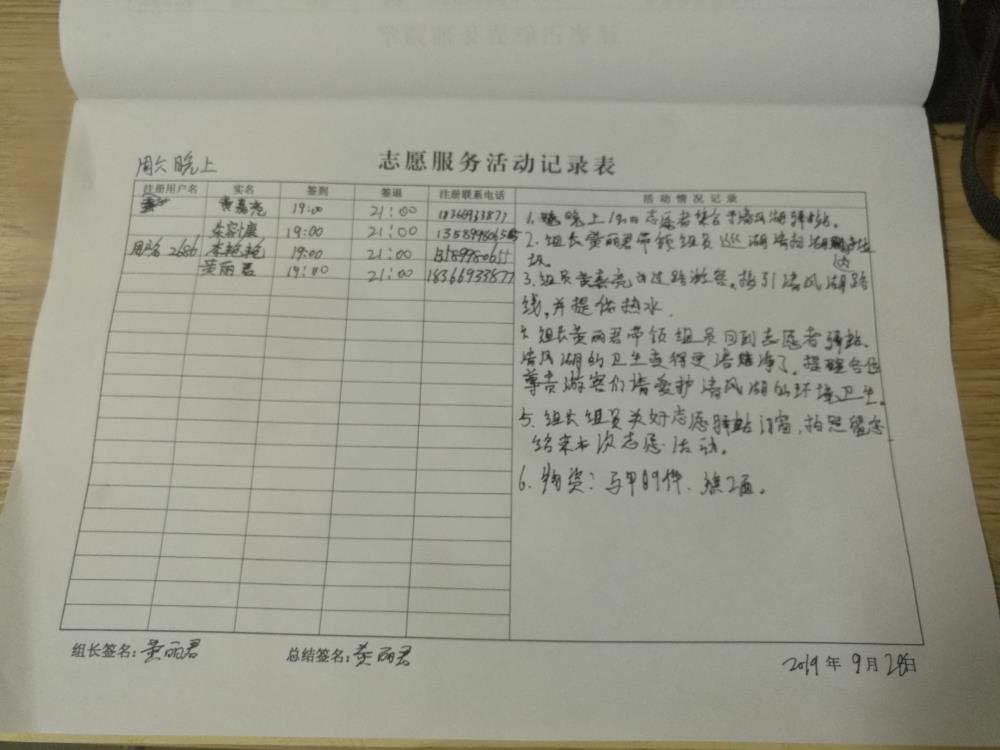 周六晚上
志愿服务活动记录表
注册用户名 实名 签到 签退 注册联系电话 活动情况记录
黄嘉亮 19:00 21:00 18366933877
19:00 21:00
用户名2686 李艳艳 19:00 21:00
黄丽君 19:00 21:00 18366933877
1. 晚上19:00志愿者集合于清风湖驿站。
2. 组长黄丽君带领组员巡湖清扫湖内垃
圾
3. 组员黄嘉亮为过路游客。指引清风湖路
线,并提供热水.
4. 组长黄丽君带领组员回到志愿者驿站、
清风湖的卫生变得更洁净了。提醒各位
尊贵游客们请爱护清风湖的环境卫生。
5. 组长组员关好志愿驿站门窗,拍照留念
结束本次志愿活动。
6. 物资:马甲89件.
组长签名:黄丽君 总结签名:黄丽君 2019年9月28日